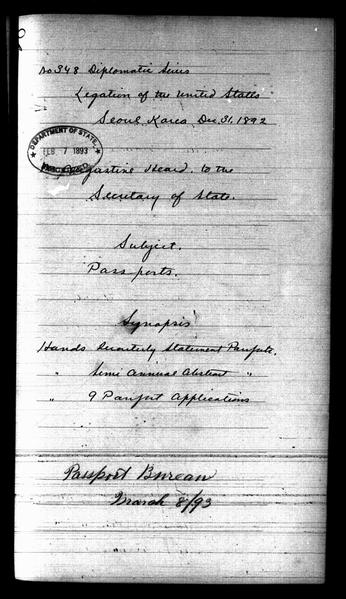 No. 348 Diplomatic Series
Legation of the United States
Seoul, Korea Dec. 31, 1892
DEPARTMENT OF STATE
FEB 7 1893
Augustine Heard. to the
Secretary of State.
Subject.
Passports.
Synopsis
Hands Quarterly Statement Passports.
" Semi Annual Abstract "
" 9 Passport Applications
Passport Bureau
March 8/93